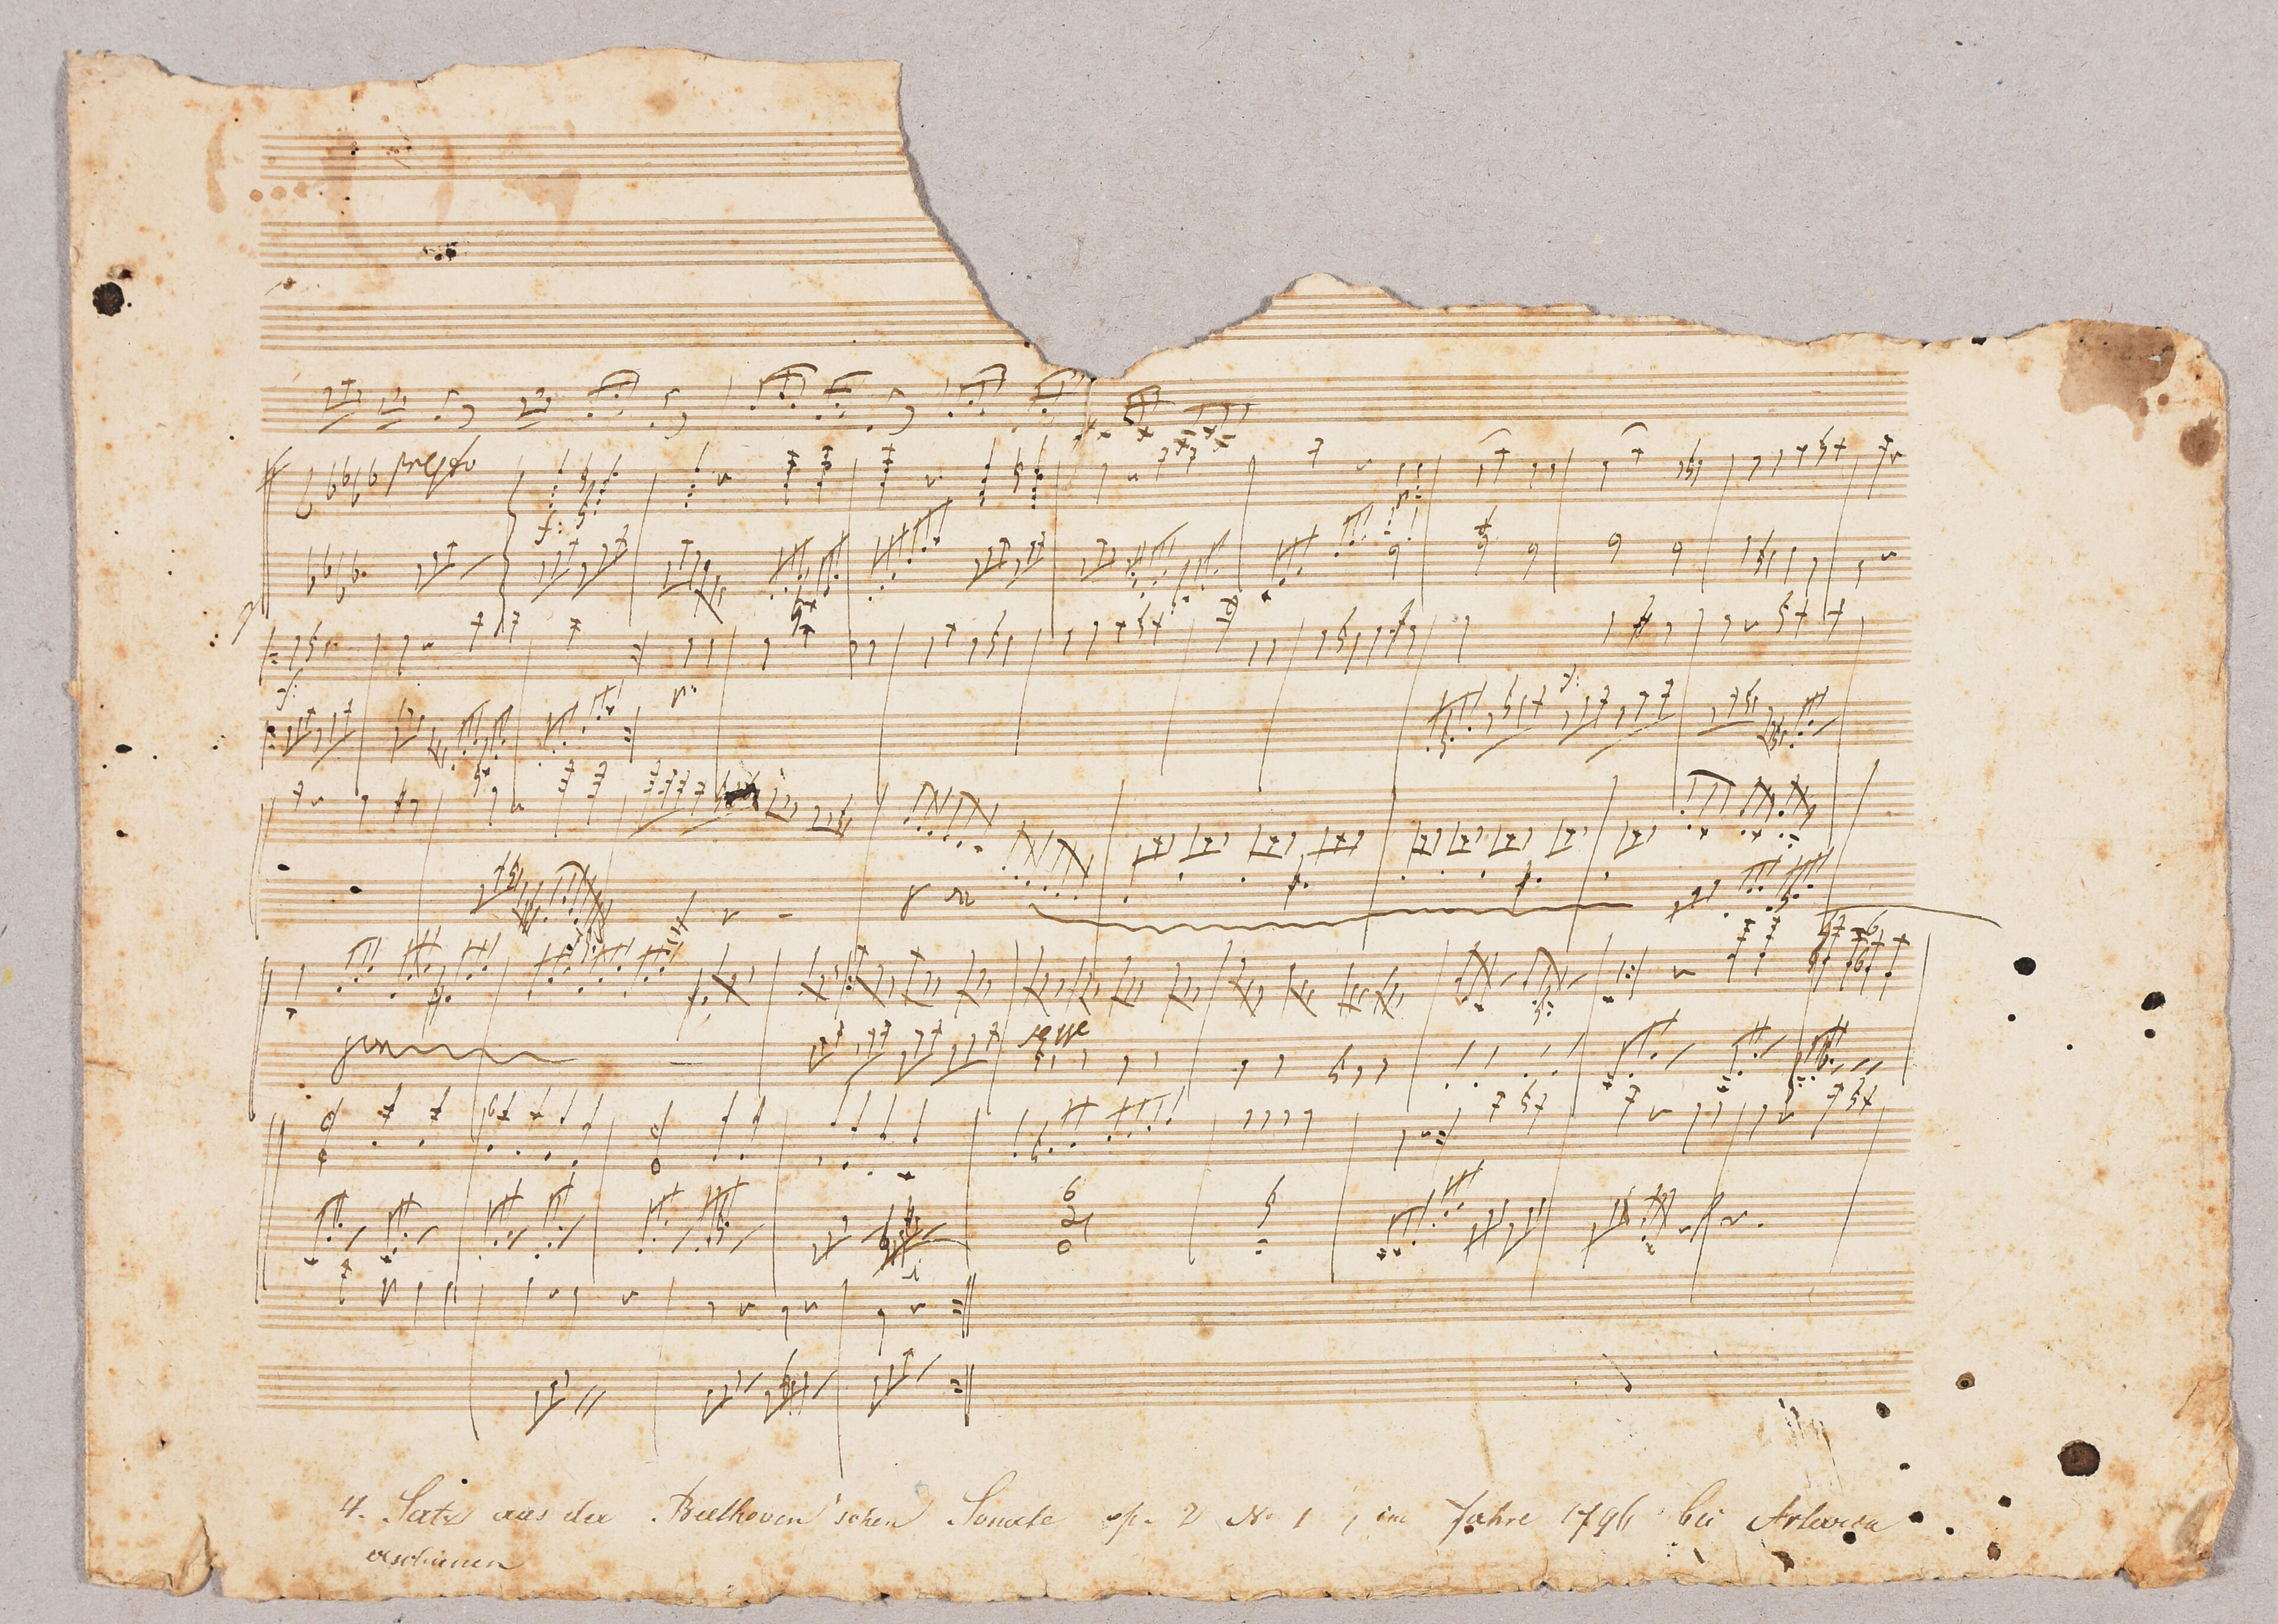 presto
f:
p:
f:
p:
f:
segue
4. Satz aus der Beethoven'schen Sonate op. 2 No 1, im Jahre 1796 bei Artaria
erschienen